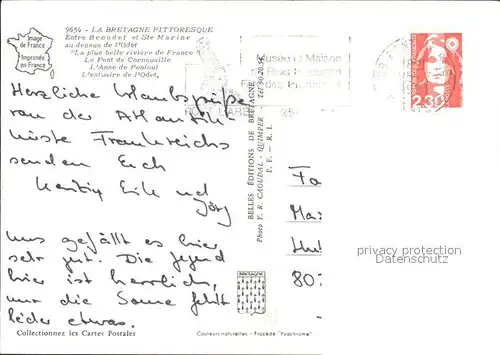 Image
de France
Imprimée
en France
9654 - LA BRETAGNE PITTORESQUE
Entre Benodet et Ste Marine
au dessus de l'Odet
"La plus belle rivière de France"
Le Pont de Cornouaille
L'Anse de Penfoul
L'estuaire de l'Odet,
Musée Maison
du Pays
des
2,30
Herzliche Urlaubsgrüße
von der Atlantik-
küste Frankreichs
senden Euch
und
Jörg
Uns gefällt es hier
sehr gut. Die Gegend
hier ist herrlich,
nur die Sonne fehlt
leider etwas.
BELLES ÉDITIONS DE BRETAGNE
Photo Y. R. CAOUDAL - QUIMPER - Tél 90.20.54
P. F. - R. I.
BRETAGNE
Fa
Ma
80
privacy protection
Datenschutz
Collectionnez les Cartes Postales
Couleurs naturelles - Procédé "Yvochrome"